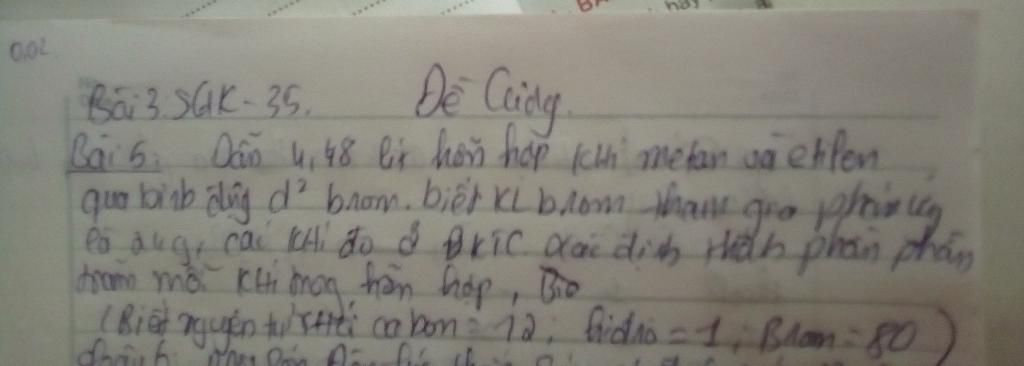 0,02
Bài 3. SGK - 35. Đề Cương.
Bài 5: Dẫn 4,48 lít hỗn hợp khí metan và etilen
qua bình đựng d² brom. biết KL brom tham gia phản ứng
là 24g, các khí đo ở ĐKTC xác định thành phần phần
trăm mỗi khí trong hỗn hợp,
(Biết nguyên tử khối cacbon = 12; hiđro = 1; Brom = 80)